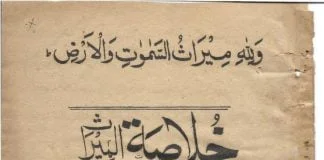 وَلِلّٰهِ مِيْرَاثُ السَّمٰوٰتِ وَالْاَرْضِ ؕ
خُلاصَة المِيْرَاث